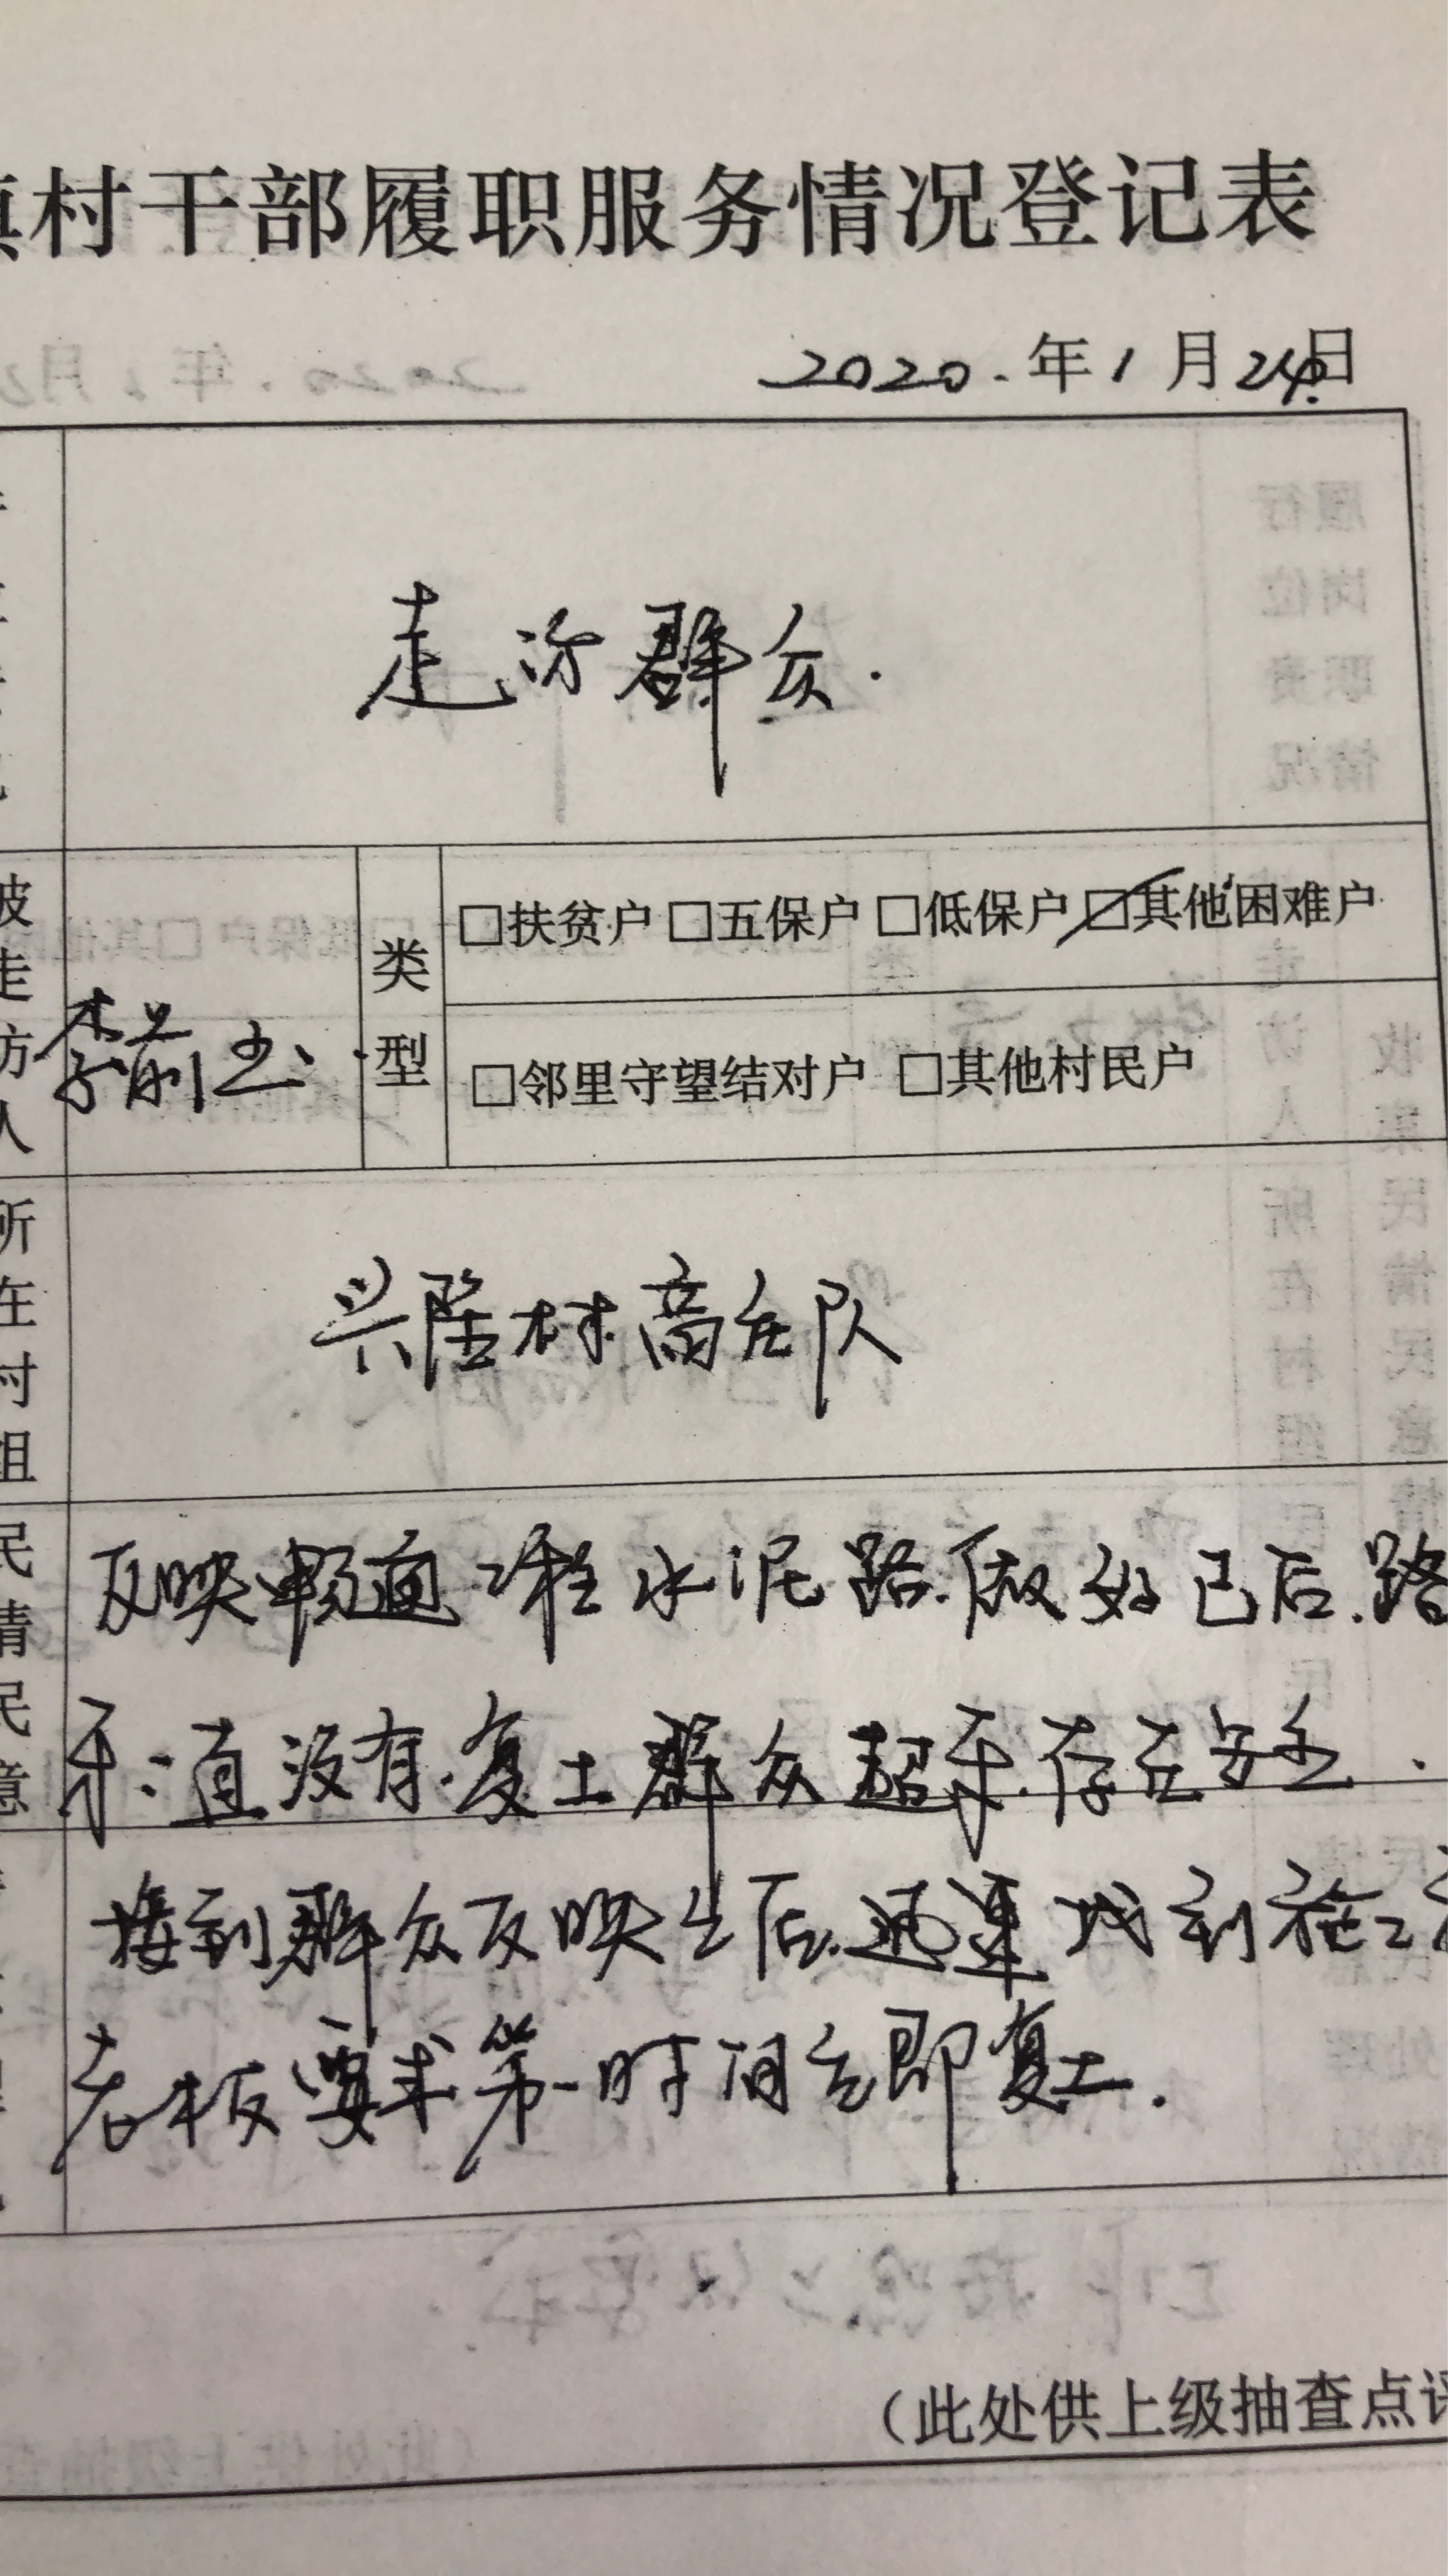 镇村干部履职服务情况登记表
2020.年1月24日
走访群众.
被走访人
李前玉
类型
□扶贫户 □五保户 □低保户 ☑其他困难户
□邻里守望结对户 □其他村民户
所在村组
兴隆村高庄队
民情民意
反映畅通工程水泥路.做好已后.路
牙一直没有.复土群众超车.存在安全.
接到群众反映之后.迅速找到施工
老板要求第一时间立即复土.
(此处供上级抽查点评